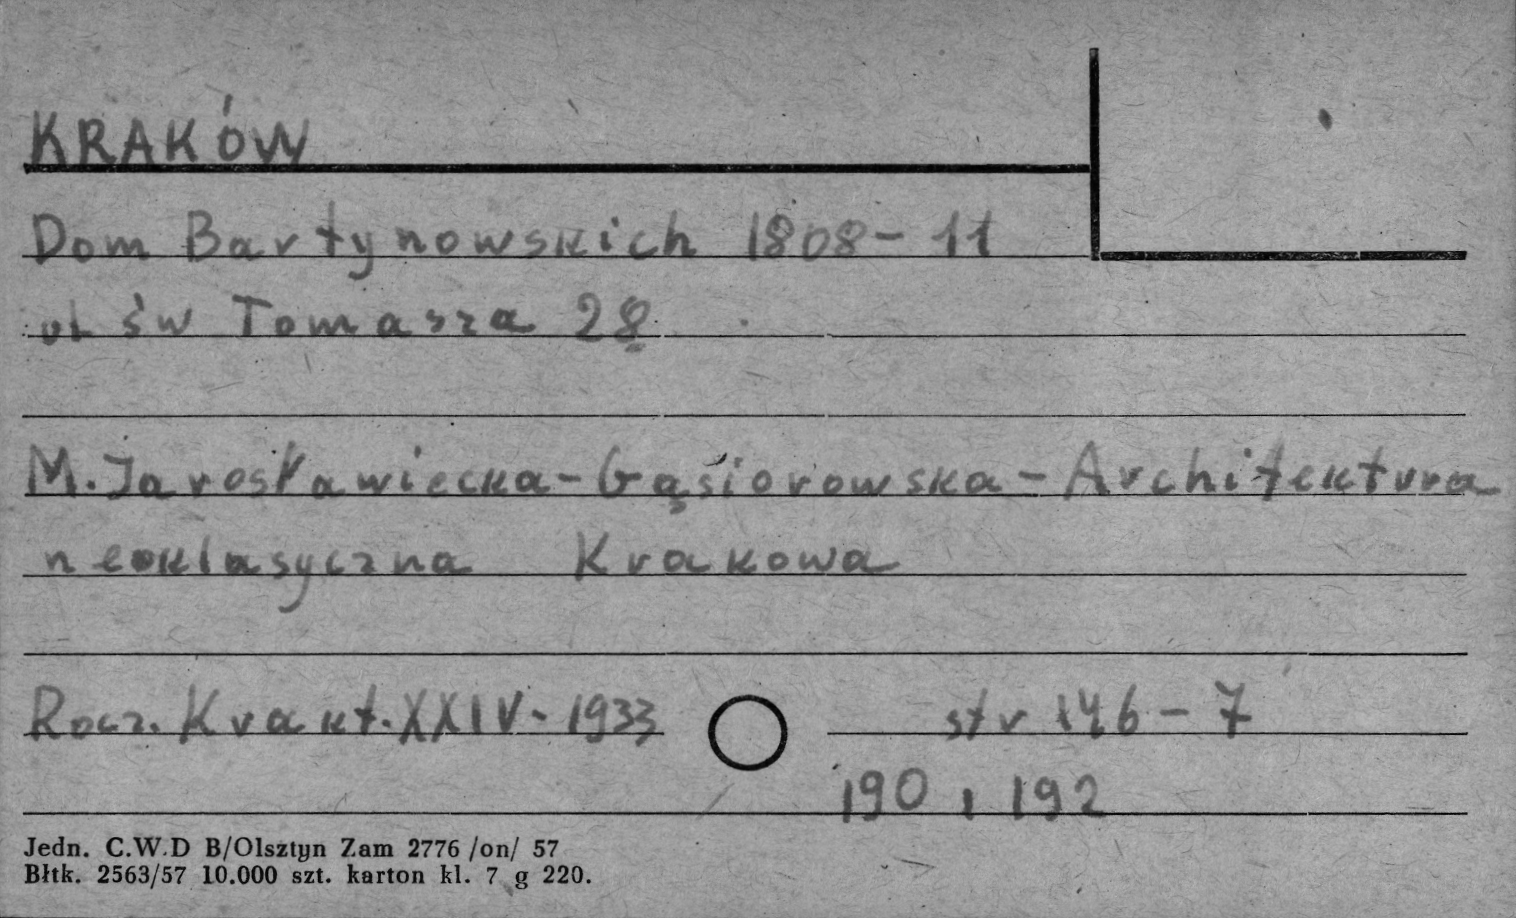 KRAKÓW
Dom Bartynowskich 1808-11
ul św Tomasza 28
M. Jarosławiecka-Gąsiorowska - Architektura
neoklasyczna Krakowa
Rocz. Krak t. XXIV - 1933 str 146-7
190, 192
Jedn. C.W.D B/Olsztyn Zam 2776 /on/ 57
Błtk. 2563/57 10.000 szt. karton kl. 7 g 220.